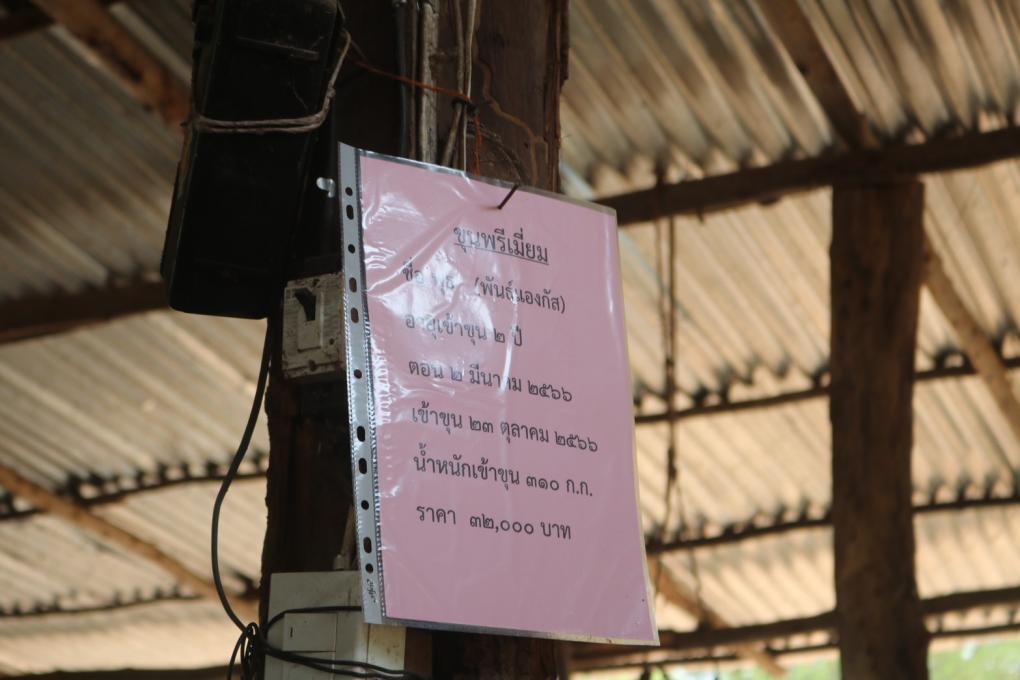 ขุนพรีเมี่ยม
ชื่อ พุธ (พันธุ์แองกัส)
อายุเข้าขุน ๒ ปี
ตอน ๒ มีนาคม ๒๕๖๖
เข้าขุน ๒๓ ตุลาคม ๒๕๖๖
น้ำหนักเข้าขุน ๓๑๐ ก.ก.
ราคา ๓๒,๐๐๐ บาท